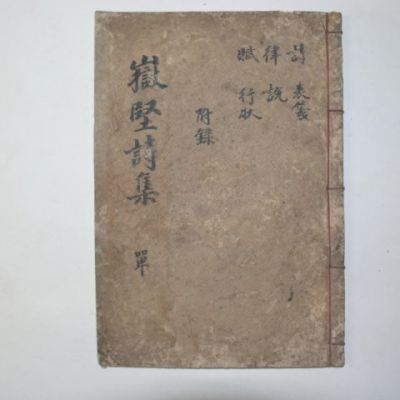 詩 表箋
律 說
賦 行狀
附錄
嶽堅詩集 單